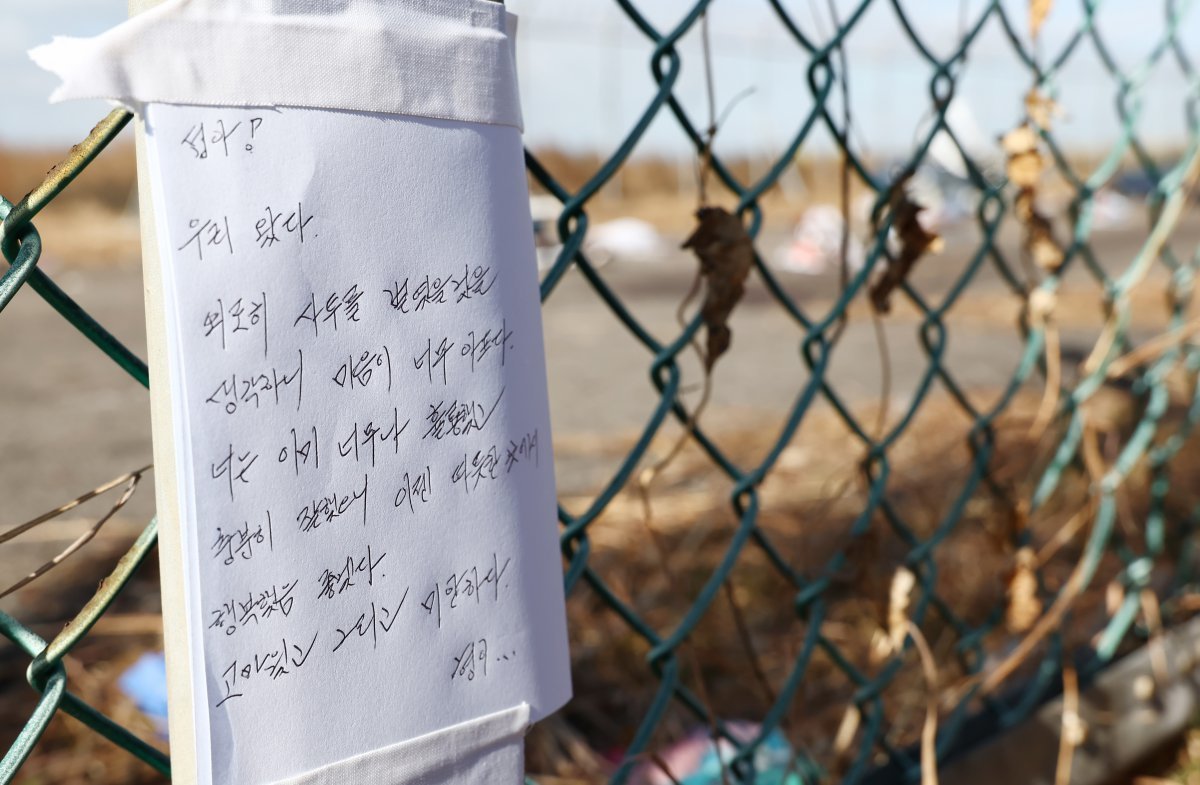 섭아!
우리 왔다.
외로이 사투를 벌였을것을
생각하니 마음이 너무 아프다.
너는 이미 너무나 훌륭했고
충분히 잘했으니 이젠 따뜻한 곳에서
행복했음 좋겠다.
고마웠고 그리고 미안하다.
형이...